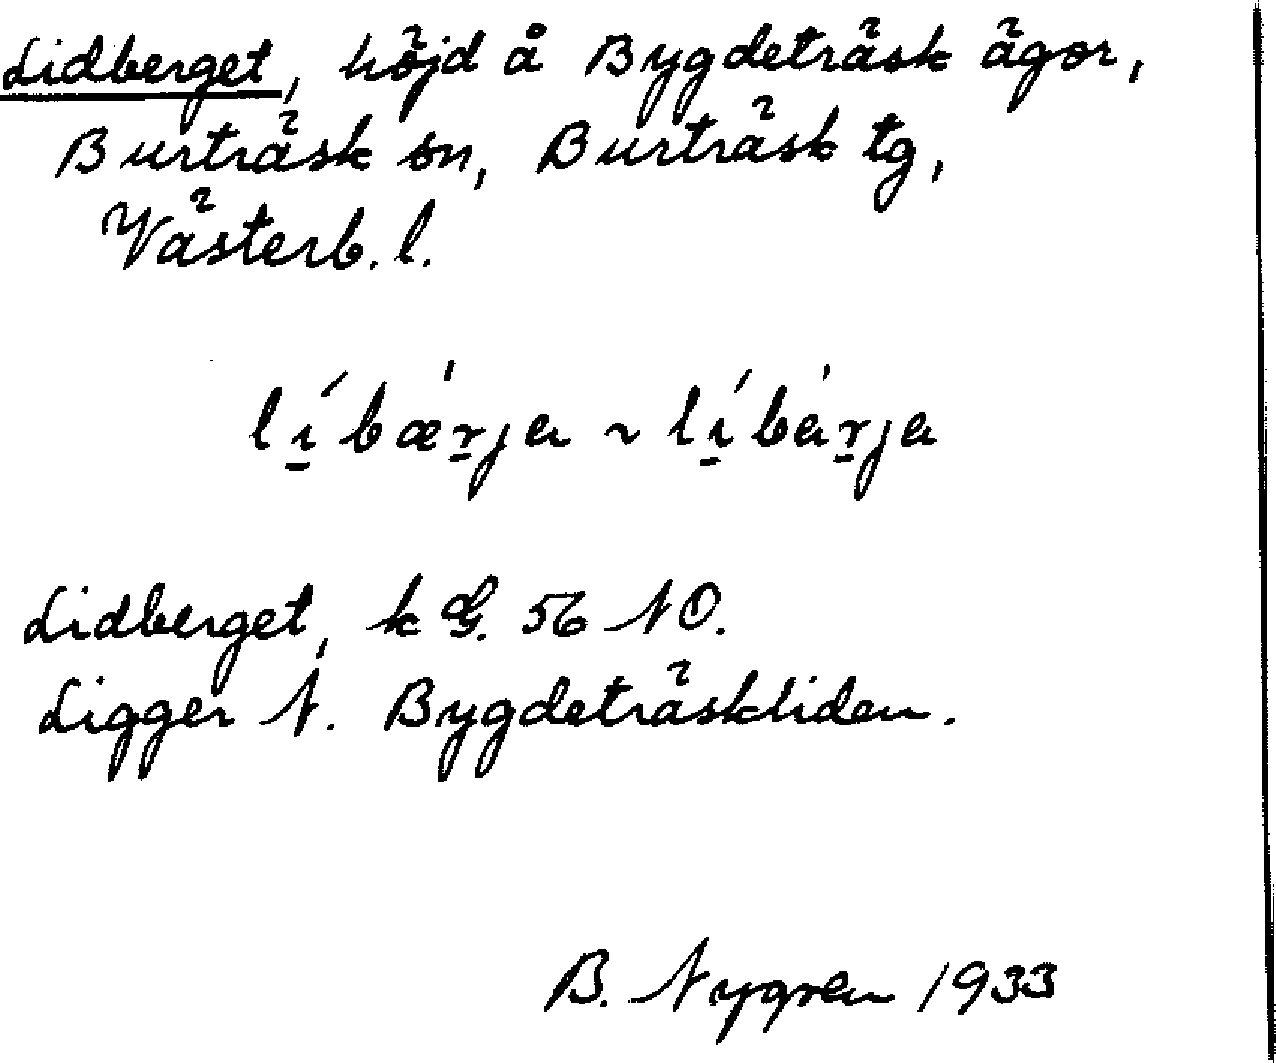 Lidberget, höjd å Bygdeträsk ägor,
Burträsk sn, Burträsk tg,
Västerb. l.
lı̱́bæ̍ṟja ~ lı̱́ba̍ṟja
Lidberget, k G. 56 NO.
Ligger N. Bygdeträskliden.
B. Nygren 1933